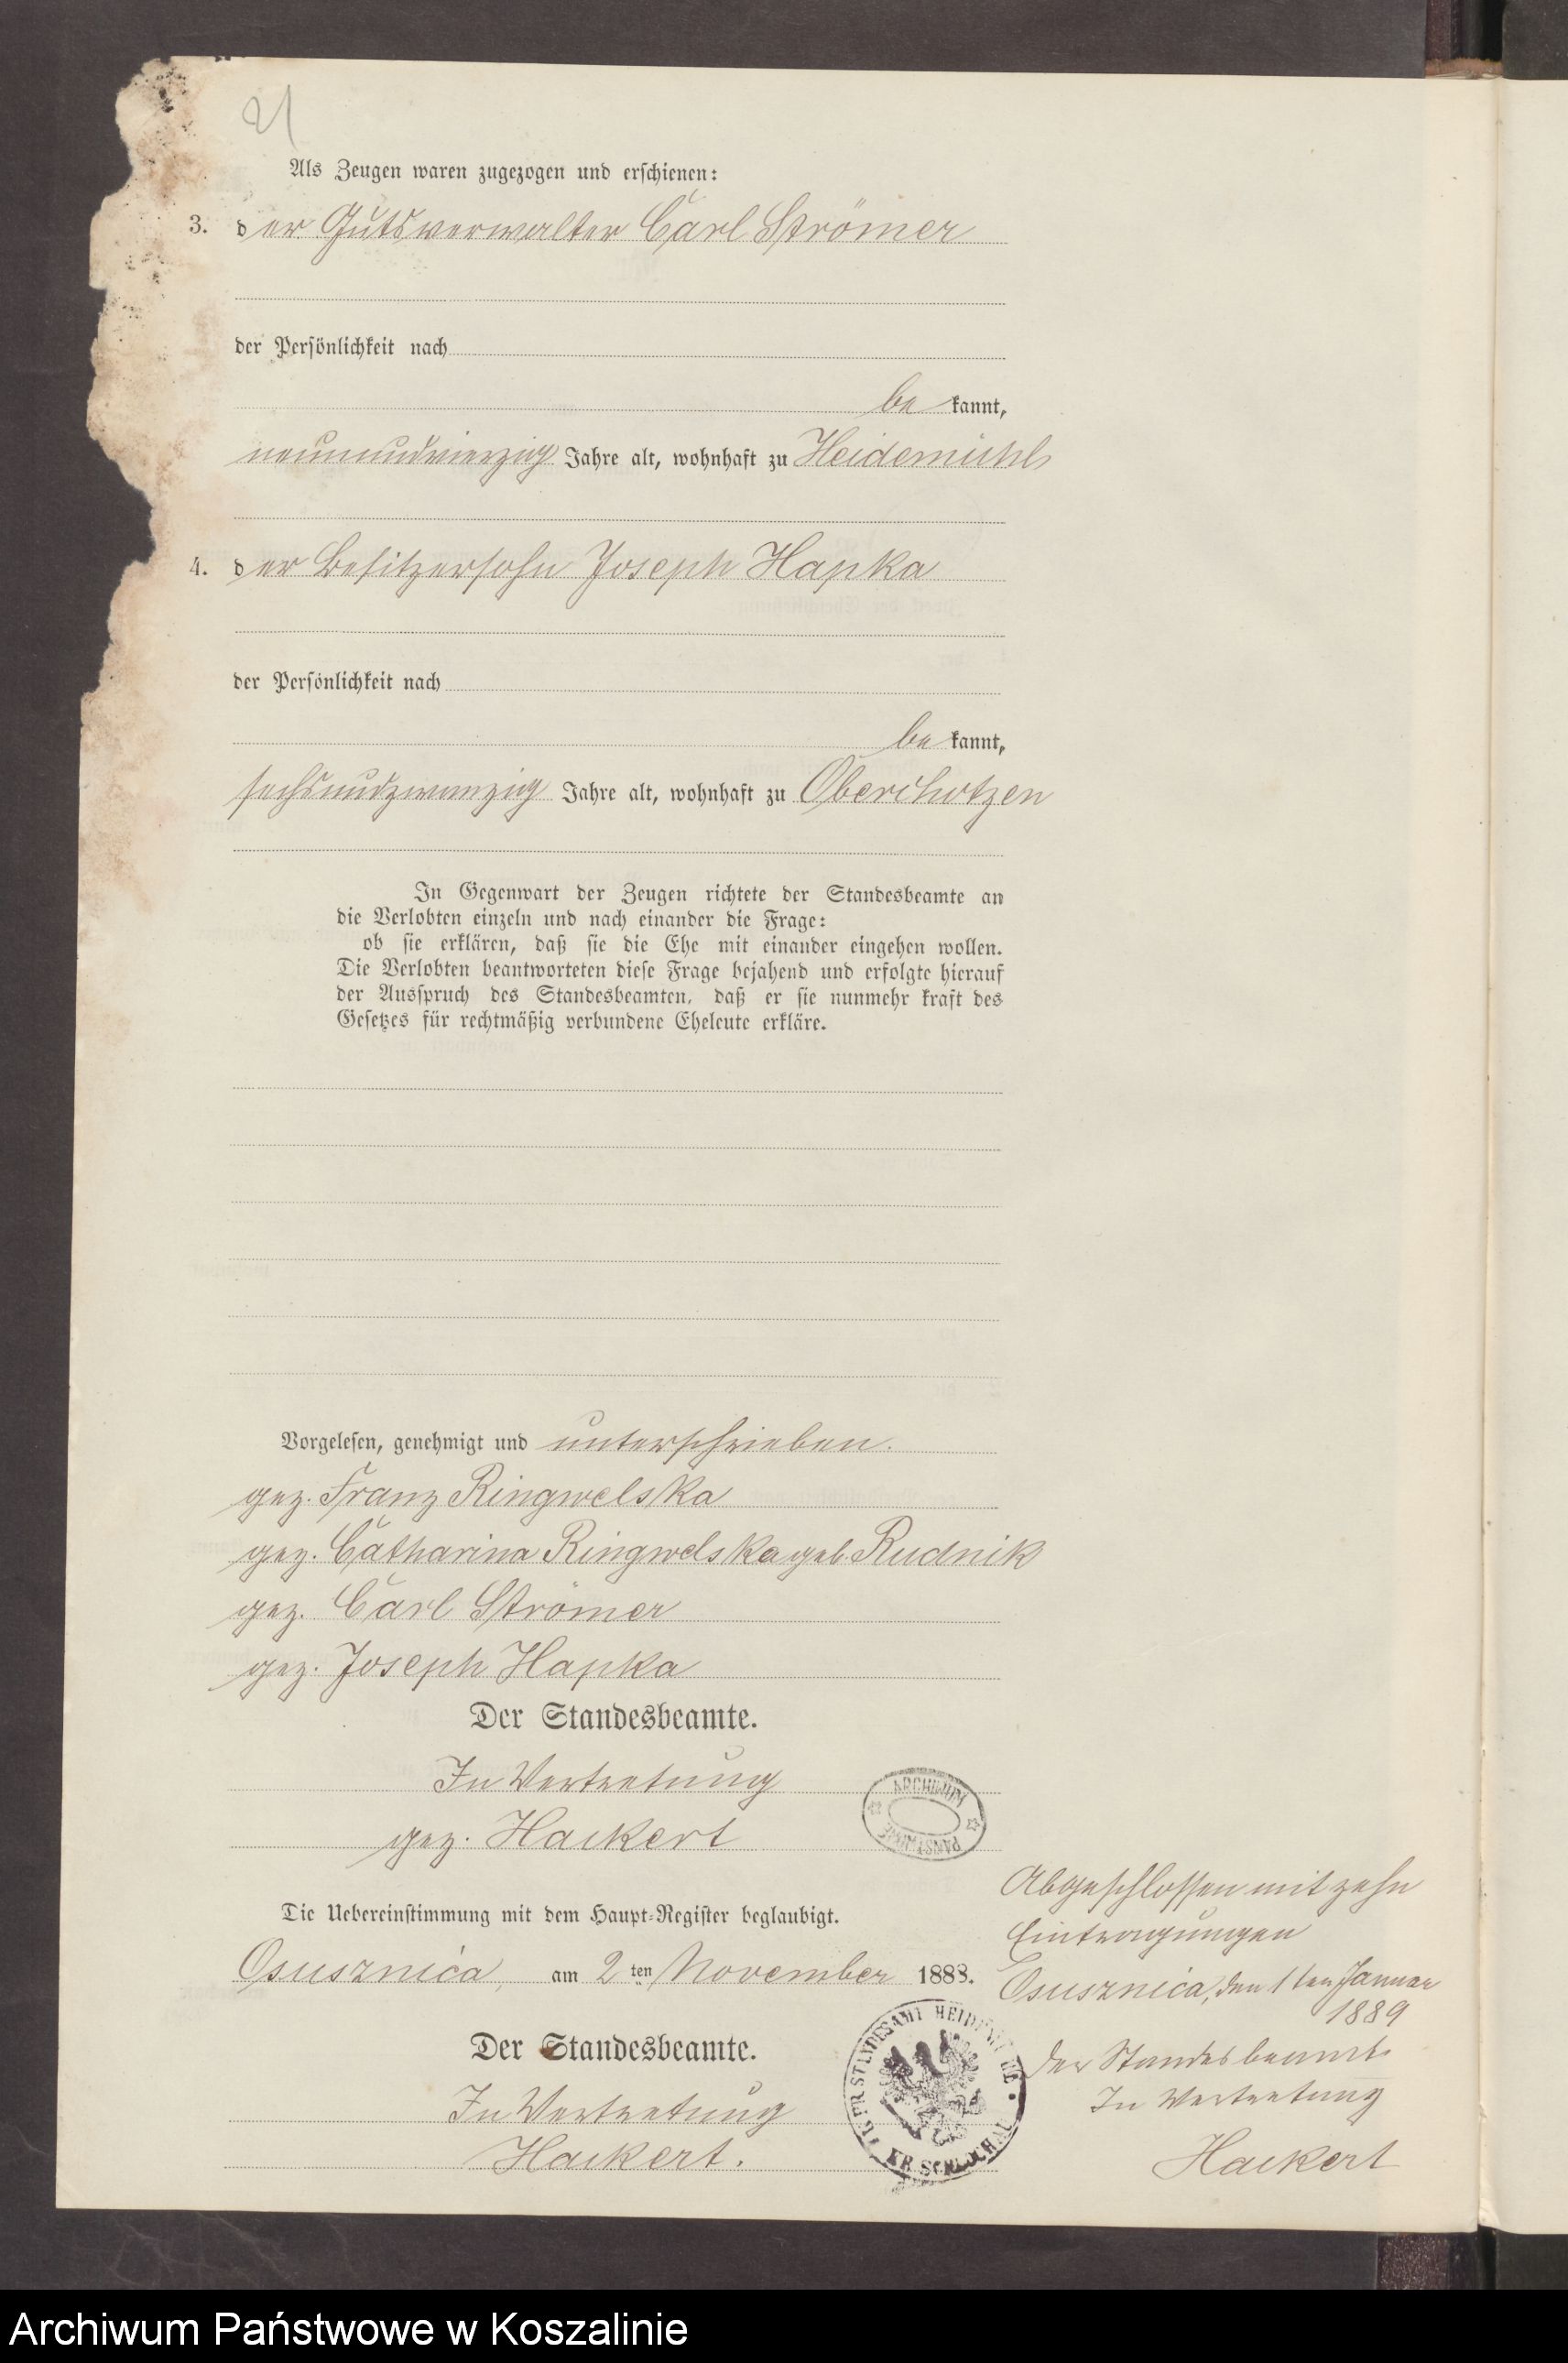 21
Als Zeugen waren zugezogen und erschienen:
3. der Gutsverwalter Carl Strömer
der Persönlichkeit nach
be kannt,
neunundvierzig Jahre alt, wohnhaft zu Heidemühl
4. der Besitzersohn Joseph Hapka
der Persönlichkeit nach
be kannt,
sechsundzwanzig Jahre alt, wohnhaft zu Oberchotzen
In Gegenwart der Zeugen richtete der Standesbeamte an
die Verlobten einzeln und nach einander die Frage:
ob sie erklären, daß sie die Ehe mit einander eingehen wollen.
Die Verlobten beantworteten diese Frage bejahend und erfolgte hierauf
der Ausspruch des Standesbeamten, daß er sie nunmehr kraft des
Gesetzes für rechtmäßig verbundene Eheleute erkläre.
Vorgelesen, genehmigt und unterschrieben.
gez. Franz Ringwelska
gez. Catharina Ringwelska geb. Rudnik
gez. Carl Strömer
gez. Joseph Hapka
Der Standesbeamte.
In Vertretung
gez. Hackert
ARCHIWUM PAŃSTWOWE
Die Uebereinstimmung mit dem Haupt-Register beglaubigt.
Osusznica, am 2 ten November 1888.
Der Standesbeamte.
In Vertretung
Hackert.
KR. SCHLOCHAU
Abgeschlossen mit zehn
Eintragungen
Osusznica, den 1ten Januar
1889
Der Standesbeamte
In Vertretung
Hackert
Archiwum Państwowe w Koszalinie